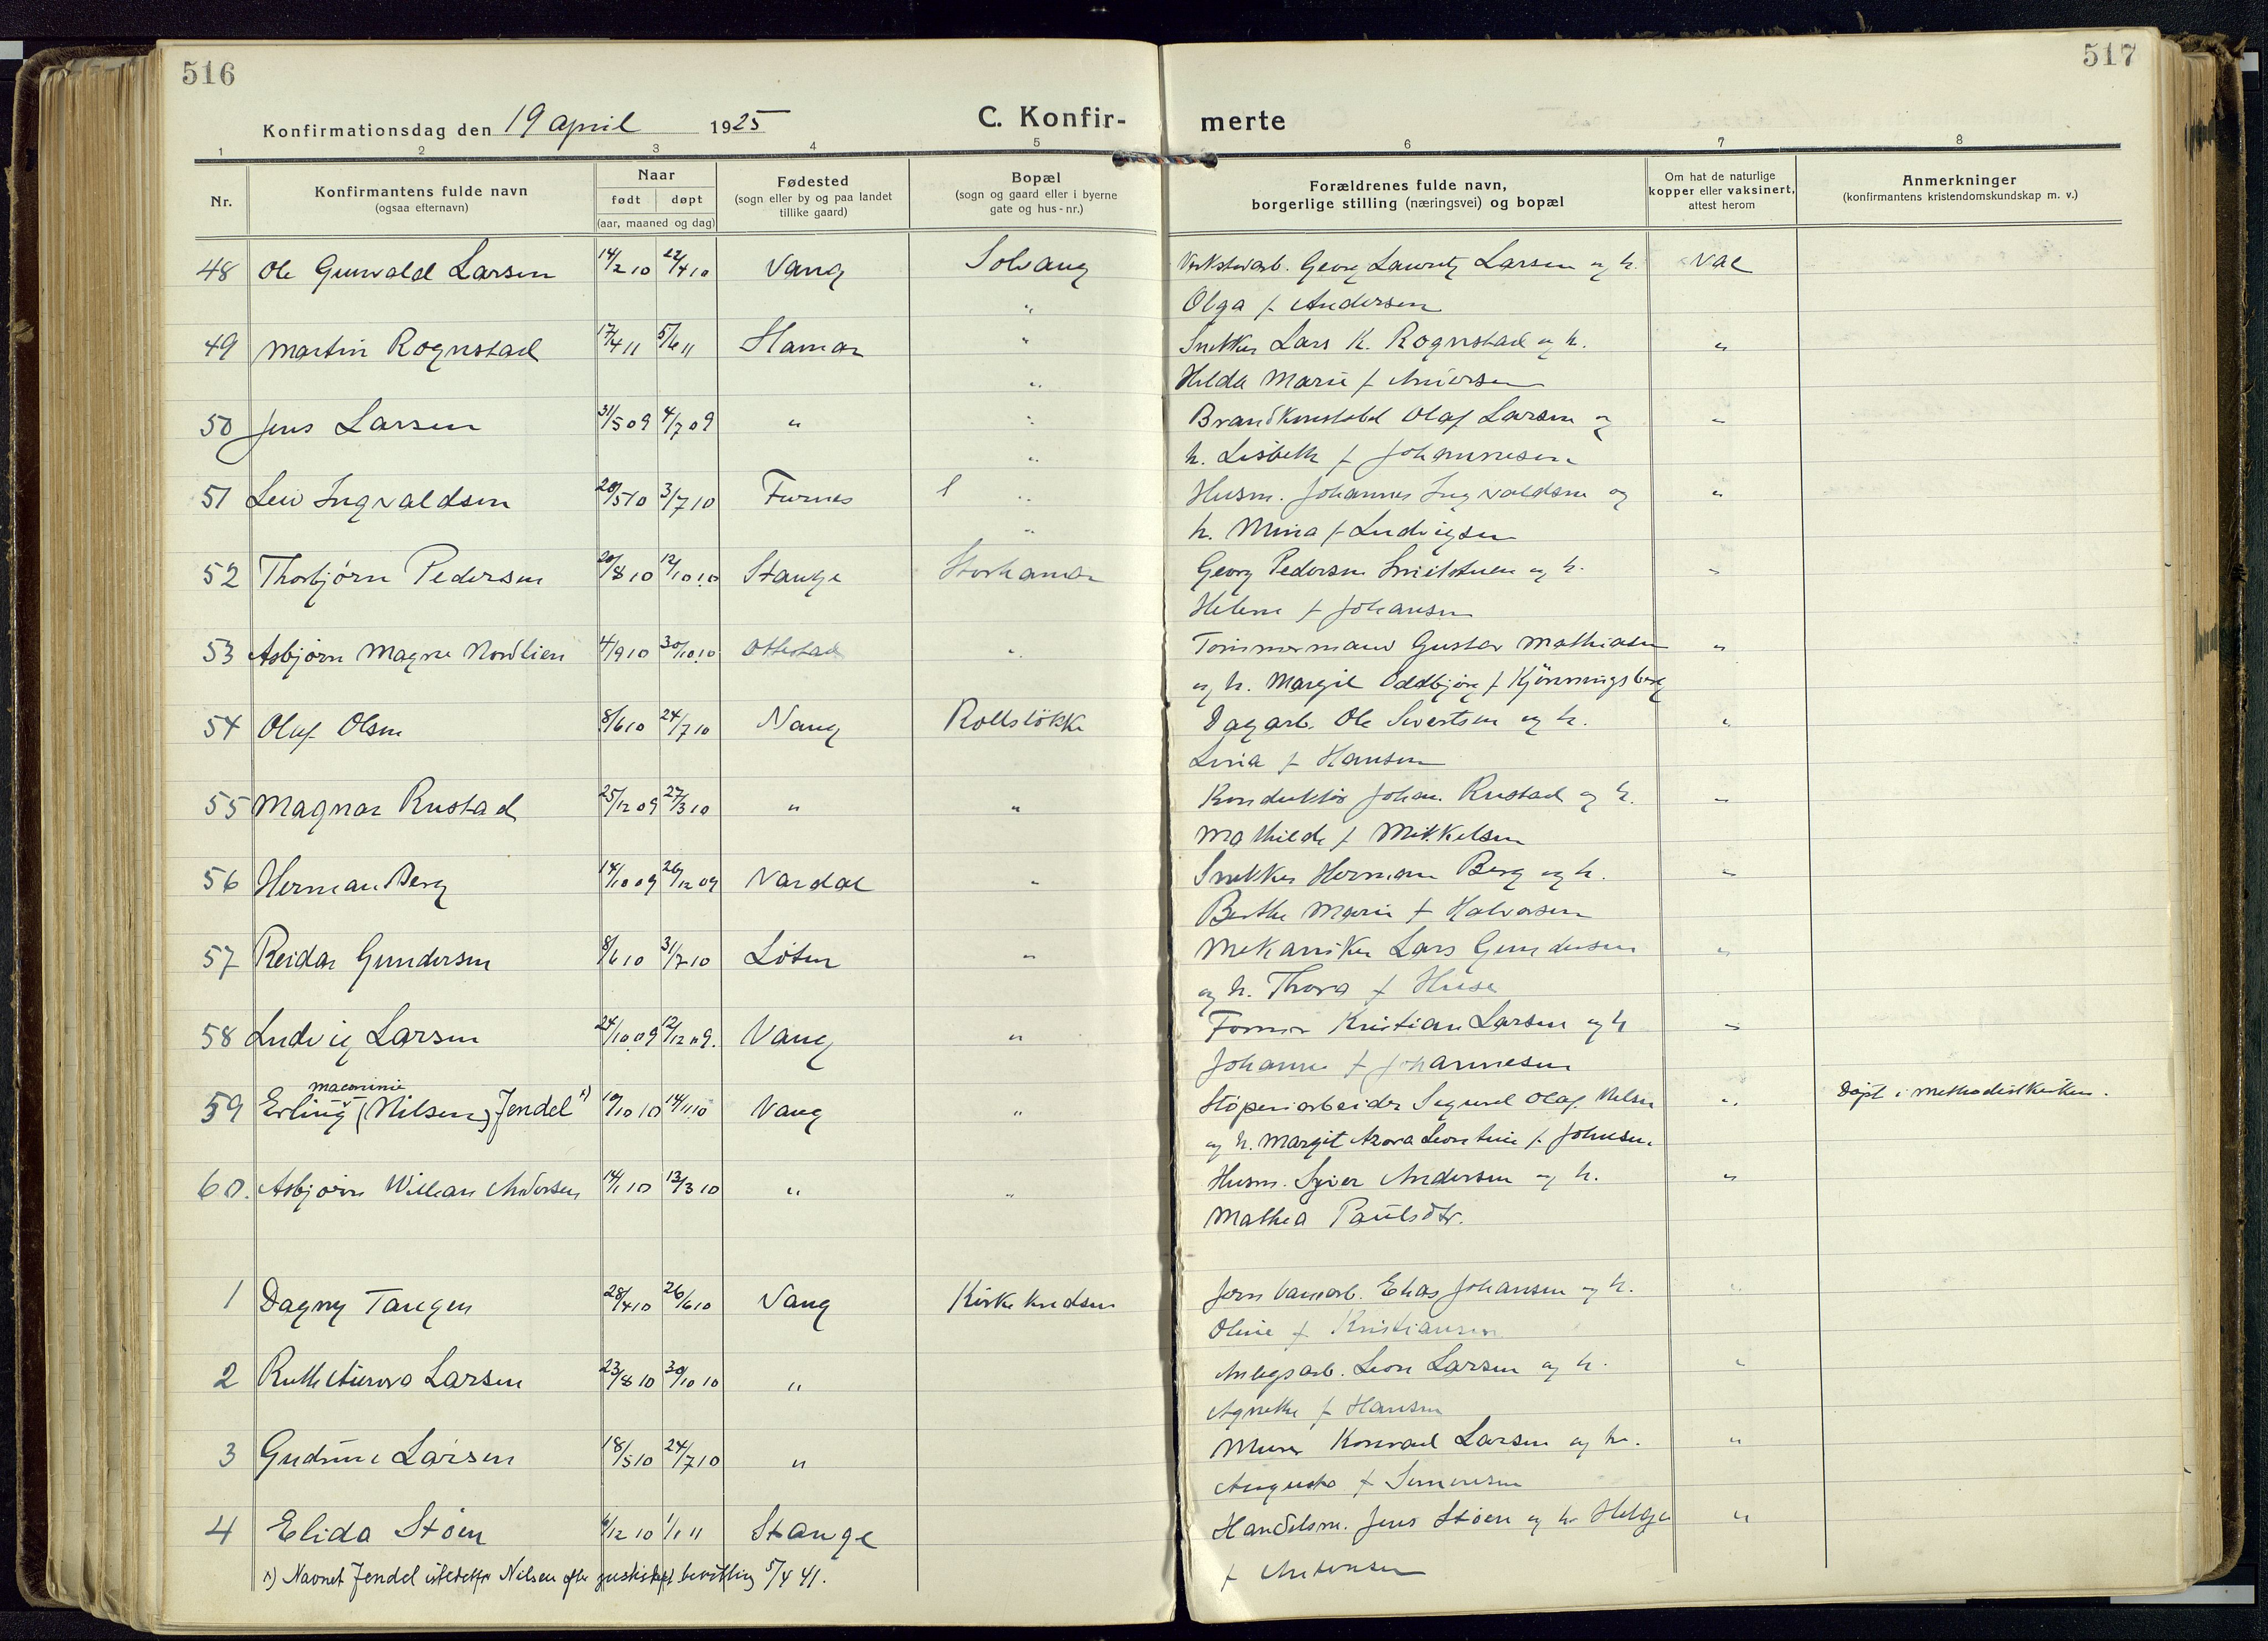 516
517
Konfirmationsdag den 19 april 1925
C. Konfir-
merte
1 2 3 4 5 6 7 8
Nr.
Konfirmantens fulde navn
(ogsaa efternavn)
Naar
født døpt
(aar, maaned og dag)
Fødested
(sogn eller by og paa landet
tillike gaard)
Bopæl
(sogn og gaard eller i byerne
gate og hus-nr.)
Forældrenes fulde navn,
borgerlige stilling (næringsvei) og bopæl
Om hat de naturlige
kopper eller vaksinert,
attest herom
Anmerkninger
(konfirmantens kristendomskundskap m. v.)
48 Ole Gunvald Larsen 14/2 10 22/4 10 Vang Solvang Verkstedarb. Georg Lauritz Larsen og h. Vac
" Olga f Andersen
49 Martin Rognstad 17/4 11 5/6 11 Hamar " Snekker Lars K. Rognstad og h. "
" Hilda Marie f Andersen
50 Jens Larsen 31/5 09 4/7 09 " " Brandkonstabel Olaf Larsen og "
" h. Lisbeth f Johannesen
51 Leiv Ingvaldsen 28/5 10 3/7 10 Furnes " Husm. Johannes Ingvaldsen og "
" h. Mina f Ludvigsen
52 Thorbjørn Pedersen 20/8 10 12/10 10 Stange Storhamar Georg Pedersen og h. "
Helene f Johansen
53 Asbjørn Magne Nordlien 4/9 10 30/10 10 Ottestad " Tømmermand Gustav Mathiasen "
og h. Margit Oddbjørg f Kjønningsberg
54 Oluf Olsen 8/6 10 24/7 10 Vang Rollsløkke Dagarb. Ole Sivertsen og h. "
Lina f Hansen
55 Magnar Rustad 25/12 09 27/3 10 " " Konduktør Johan Rustad og h. "
Mathilde f Mikkelsen
56 Herman Berg 14/10 09 26/12 09 Vardal " Snekker Herman Berg og h. "
Berthe Marie f Halvorsen
57 Reidar Gundersen 8/6 10 31/7 10 Løten " Mekaniker Lars Gundersen "
og h. Thora f Huse
58 Ludvig Larsen 24/10 09 12/12 09. Vang " Former Kristian Larsen og h "
Johanne f Johannesen
59 Erling (Nilsen) Jendel 1) 10/10 10 14/11 10 Vang " Støperiarbeider Sigurd Olaf Nilsen " Døpt i Methodistkirken.
og h. Margit Leontine f Johnsen
60. Asbjørn William Andersen 14/1 10 13/3 10 " " Husm. Syver Andersen og h. "
Mathea Paulsdtr.
1 Dagny Tangen 28/4 10 26/6 10 Vang Kirkekudsen Jernbanearb. Elias Johansen og h. "
Oline f Kristiansen
2 Ruth Aurora Larsen 23/8 10 30/10 10 " Anlegsarb. Leon Larsen og h. "
Agnethe f Hansen
3 Gudrun Larsen 18/5 10 24/7 10 " Murer Konrad Larsen og h. "
Augusta f Simensen
4 Elida Støen 6/12 10 1/1 11 Stange Handelsm. Jens Støen og h. Helga "
f Antonsen
1) Navnet Jendel istedetfor Nilsen efter justisdept bevilling 5/4 41.